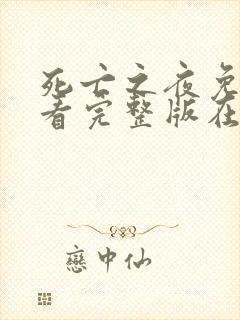 死亡之夜免
看完整版在
戀中仙